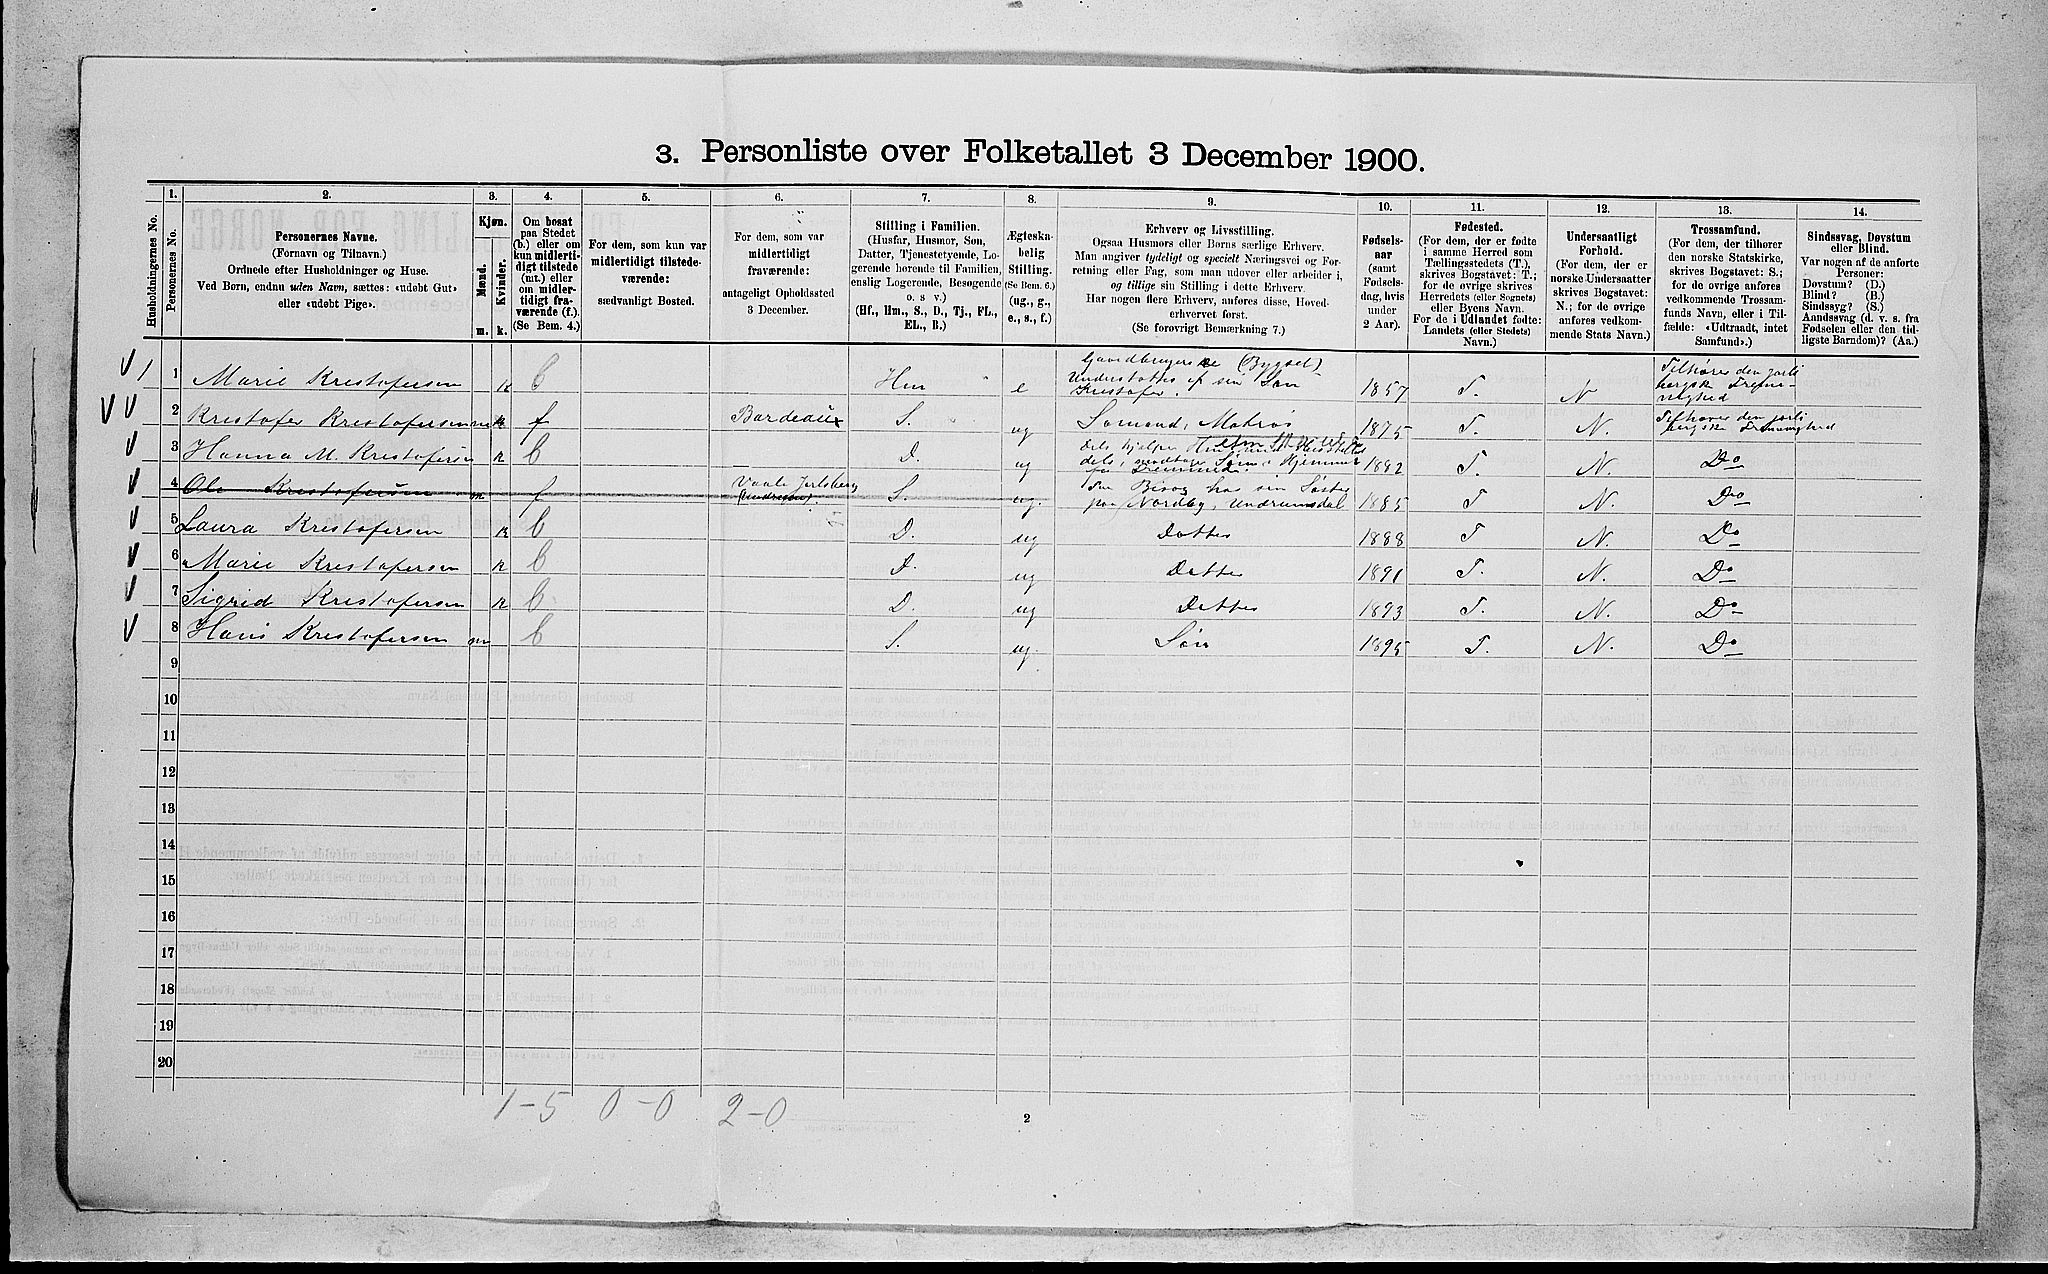 3. Personliste over Folketallet 3 December 1900.
Husholdningernes No.
1.
Personernes No.
2.
Personernes Navne.
(Fornavn og Tilnavn.)
Ordnede efter Husholdninger og Huse.
Ved Børn, endnu uden Navn, sættes: «udøbt Gut»
eller «udøbt Pige».
3.
Kjøn.
Mænd.
Kvinder.
m.
k.
4.
Om bosat
paa Stedet
(b.) eller om
kun midlerti-
digt tilstede
(mt.) eller
om midler-
tidigt fra-
værende (f.).
(Se Bem. 4.)
5.
For dem, som kun var
midlertidigt tilstede-
værende:
sædvanligt Bosted.
6.
For dem, som var
midlertidigt
fraværende:
antageligt Opholdssted
3 December.
7.
Stilling i Familien.
(Husfar, Husmor, Søn,
Datter, Tjenestetyende, Lo-
gerende hørende til Familien,
enslig Logerende, Besøgende
o. s v.)
(Hf., Hm., S., D., Tj., FL.,
EL., B.)
8.
Ægteska-
belig
Stilling.
(Se Bem. 6.)
(ug., g.,
e., s., f.)
9.
Erhverv og Livsstilling.
Ogsaa Husmors eller Børns særlige Erhverv.
Man angiver tydeligt og specielt Næringsvei og For-
retning eller Fag, som man udover eller arbeider i,
og tillige sin Stilling i dette Erhverv.
Har nogen flere Erhverv, anføres disse, Hoved-
erhvervet først.
(Se forøvrigt Bemærkning 7.)
10.
Fødsels-
aar
(samt
Fødsels-
dag, hvis
under
2 Aar).
11.
Fødested.
(For dem, der er fødte
i samme Herred som
Tællingsstedets (T.),
skrives Bogstavet: T.;
for de øvrige skrives
Herredets (eller Sognets)
eller Byens Navn.
For de i Udlandet fødte:
Landets (eller Stedets)
Navn.)
12.
Undersaatligt
Forhold.
(For dem, der er
norske Undersaatter
skrives Bogstavet:
N.; for de øvrige
anføres vedkom-
mende Stats Navn.)
13.
Trossamfund.
(For dem, der tilhører
den norske Statskirke,
skrives Bogstavet: S.;
for de øvrige anføres
vedkommende Trossam-
funds Navn, eller i Til-
fælde: «Udtraadt, intet
Samfund».)
14.
Sindssvag, Døvstum
eller Blind.
Var nogen af de anførte
Personer:
Døvstum? (D.)
Blind? (B.)
Sindssyg? (S.)
Aandssvag (d. v. s. fra
Fødselen eller den tid-
ligste Barndom)? (Aa.)
1 Marie Kristofersen k b Hm e Gaardbrugerske (Bygsel) Understøttes af sin Søn Kristofer. 1857 T. N Tilhører den jarlsbergske Frimenighed
2 Kristofer Kristofersen m f Bordeaux S. ug Sømand, Matros 1875 T. N. Tilhører den jarlsbergske Frimenighed
3 Hanna M. Kristofersen k b D. ug dels hjelper dels Søm i Hjemmet for Fremmede. 1882 T. N. Do
4 Ole Kristofersen m f Vaale Jarlsberg S. ug. paa Besøg hos sin Søster paa Nordby, Undrumsdal 1885 T N. Do
5 Laura Kristofersen k b D. ug Datter 1888 T N. Do
6 Marie Kristofersen k b D. ug Datter 1891 T. N. Do
7 Sigrid Kristofersen k b D. ug Datter 1893 T. N. Do
8 Hans Kristofersen m b S. ug. Søn 1895 T. N. Do
9
10
11
12
13
14
15
16
17
18
19
20
1-5 0-0 2-0
2